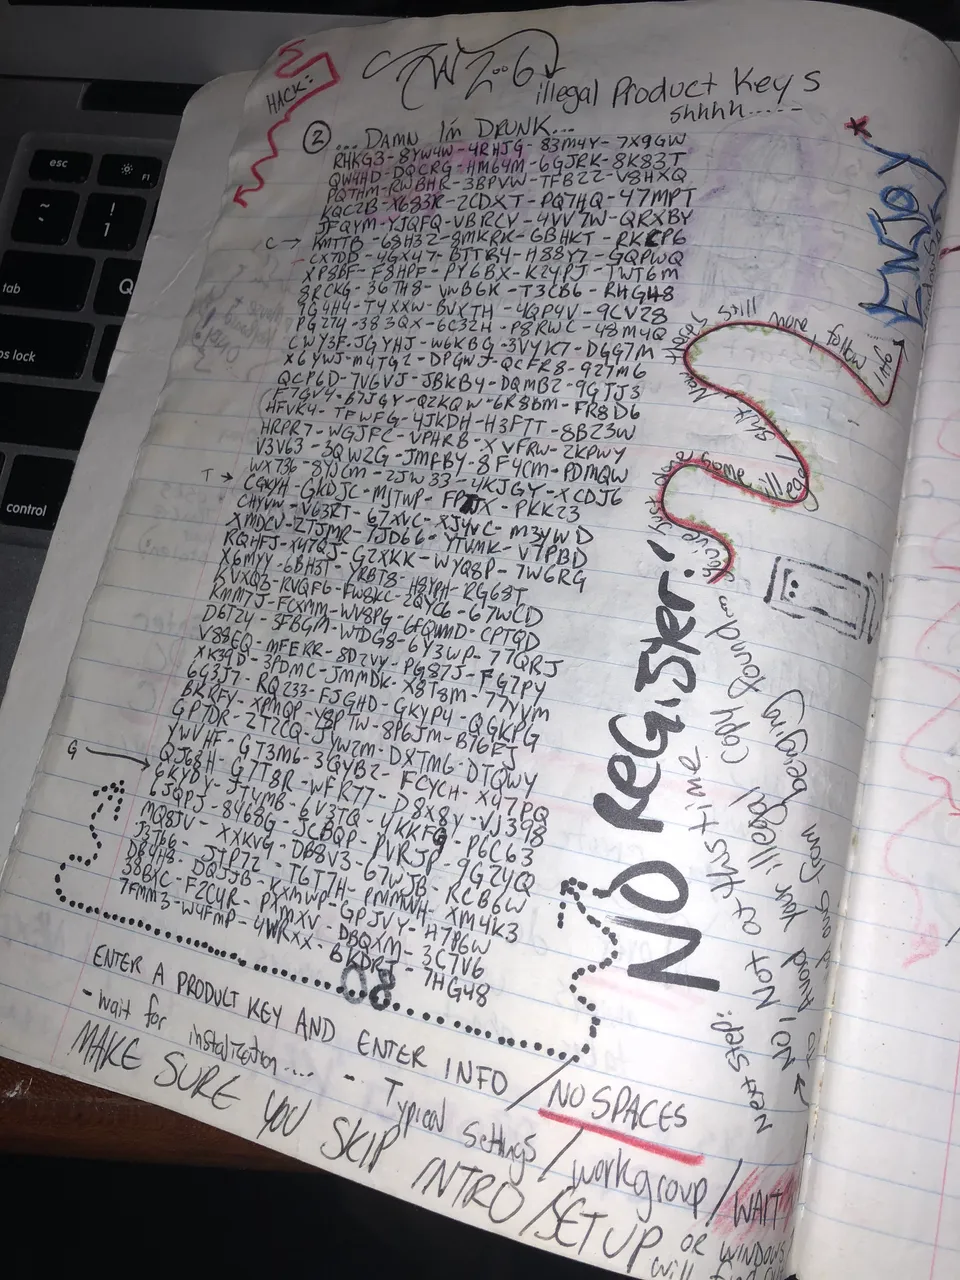 HACK:
2006
illegal Product Keys
shhhh.....
2
... DAMN I'm DRUNK...
RHKG3-8YW4W-4RHJG-83M4Y-7X9GW
QW4HD-DQCRG-HM64M-6GJRK-8K83T
PQTHM-RWBHR-3BPVW-TFBZZ-V8HXQ
KQCZB-X683R-ZCDXT-PQ7HQ-47MPT
JFQYM-YJQFQ-VBRCV-4VV7W-QRXBY
C → KMTTB-68H3Z-8MKRK-GBHKT-RKCP6
CX7DD-4GX47-BTTB4-H88Y7-GQPWQ
XP8DF-F8HPF-PY6BX-K24PJ-TWT6M
8RCKG-36TH8-VWB6K-T3CB6-RHGH8
9G4H4-T4XXW-BVXTH-4QP4V-9CV28
PG274-383QX-6C32H-P8RWC-48M4Q
CWY3F-JGYHJ-W6KBG-3VYK7-DGG7M
X6YWJ-M4TG2-DPGWJ-QCFR8-927M6
QCP6D-7VGVJ-JBKB4-DQMBZ-9GTJ3
F7GV4-67JGY-QZKQW-6R8BM-FR8D6
HFVK4-TFWFG-4JKDH-H3FTT-8BZ3W
HRPR7-WGJFC-VPHRB-XVFRW-2KPWY
V3V63-3QWZG-JMFBY-8F4CM-PDMQW
WX736-8YJCM-2JW33-4KJGY-XCDJ6
T → CGKYH-GKDJC-MJTWP-FPTJX-PKK23
CHYVW-V63RT-67XVC-XJ4VC-M3YWD
XMDCV-2TJMR-7JD66-YTVMK-V7PBD
RQHFJ-X47QJ-G2XKK-WYQ8P-7W6RG
X6MYY-6BH3T-PRBT8-H8YPH-RG68T
KVXQB-RVQF6-FW8KC-2QYC6-67WCD
KMM7J-FCXMM-WV8PG-6FQWMD-CPTQD
D6T24-3FBGM-WTDG8-6Y3WP-77QRJ
V89EQ-MFERR-8D2VY-PG87J-FGZPY
XK39D-3PDMC-JMMDK-X8T8M-77YVM
6G3J7-RQ233-FJGHD-GKYP4-QGKPG
BKRFY-XPMQP-Y8PTW-8P6JM-B76FJ
GP7DR-2T2CQ-JYW2M-DXTMG-DTQWY
YWVHF-GT3M6-3GYB2-FCYCH-X47PQ
G → QJ68H-G7T8R-WFRT7-D8X8Y-VJ398
6KYDY-JT4MB-6V3TQ-4KKFG-P6C63
6JQPJ-8Y68G-JCBQP-PVRJP-9GZ4Q
MQ8JV-XXKVG-DB8V3-67WJB-RCB6W
J3T66-JTP7Z-T6T7H-PMMWH-XM4K3
DB4H8-DQJJB-KXMWP-GPJVY-H7P6W
38BXC-F2C4R-PXMXV-DBQXM-3C7V6
7FMM3-W4FMP-4WRXX-BKDRT-7HG48
08
ENTER A PRODUCT KEY AND ENTER INFO / NO SPACES
- wait for
instalization....
- Typical settings / workgroup / WAIT
MAKE SURE YOU SKIP INTRO / SETUP
OR WINDOWS
will find
ENJOY
still more to follow
NO REGISTER!
Next Step:
NO! Not at this time
Avoid your illegal copy found
and from being